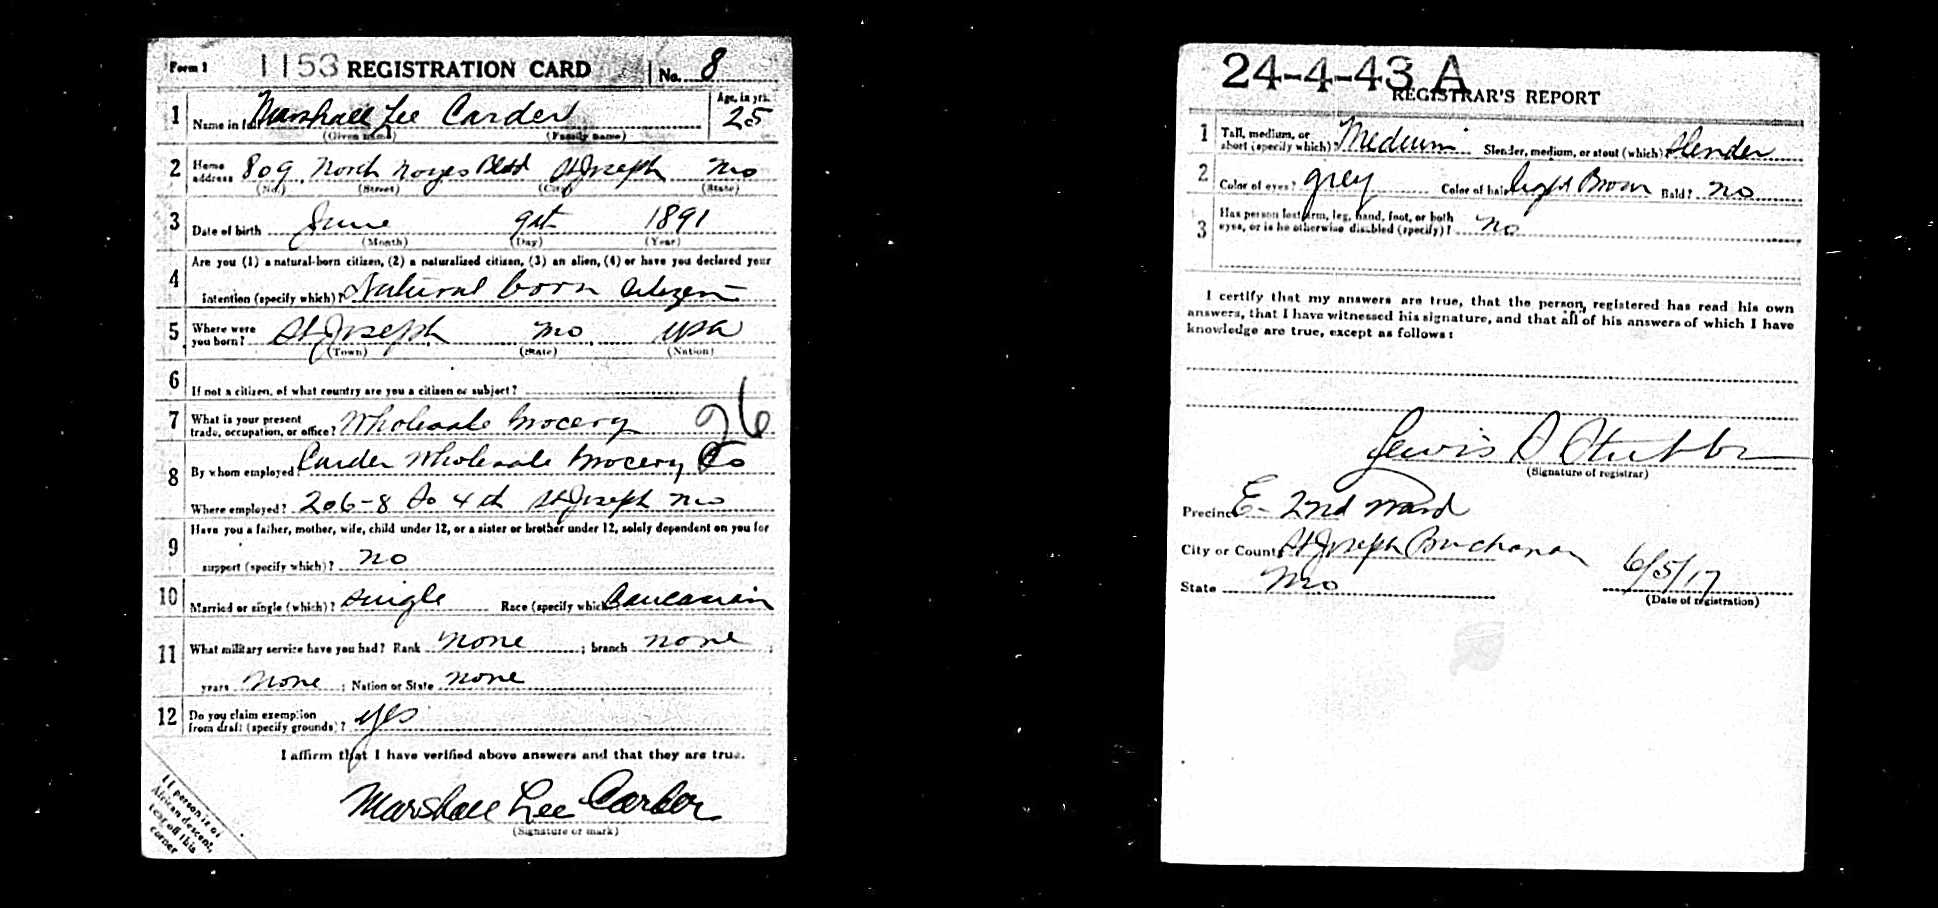 Form 1 1153 REGISTRATION CARD No. 8
1 Name in full Marshall Lee Carder Age, in yrs. 25
(Given name) (Family name)
2 Home address 809 North Noyes Blvd St Joseph Mo
(No.) (Street) (City) (State)
3 Date of birth June 9th 1891
(Month) (Day) (Year)
4 Are you (1) a natural-born citizen, (2) a naturalized citizen, (3) an alien, (4) or have you declared your
intention (specify which)? Natural born citizen
5 Where were you born? St Joseph Mo USA
(Town) (State) (Nation)
6 If not a citizen, of what country are you a citizen or subject?
7 What is your present trade, occupation, or office? Wholesale Grocery 26
8 By whom employed Carder Wholesale Grocery Co
Where employed? 206-8 So 4th St Joseph Mo
9 Have you a father, mother, wife, child under 12, or a sister or brother under 12, solely dependent on you for
support (specify which)? no
10 Married or single (which)? Single Race (specify which) Caucasian
11 What military service have you had? Rank none ; branch none ;
years none ; Nation or State none
12 Do you claim exemption from draft (specify grounds)? yes
I affirm that I have verified above answers and that they are true.
Marshall Lee Carder
(Signature or mark)
If person is of
African descent,
tear off this
corner
24-4-43 A
REGISTRAR'S REPORT
1 Tall, medium, or short (specify which)? Medium Slender, medium, or stout (which)? Slender
2 Color of eyes? grey Color of hair light Brown Bald? no
3 Has person lost arm, leg, hand, foot, or both
eyes, or is he otherwise disabled (specify)? no
I certify that my answers are true, that the person registered has read his own
answers, that I have witnessed his signature, and that all of his answers of which I have
knowledge are true, except as follows:
Lewis D Stubbs
(Signature of registrar)
Precinct E- 2nd Ward
City or County St Joseph Buchanan
State Mo 6/5/17
(Date of registration)